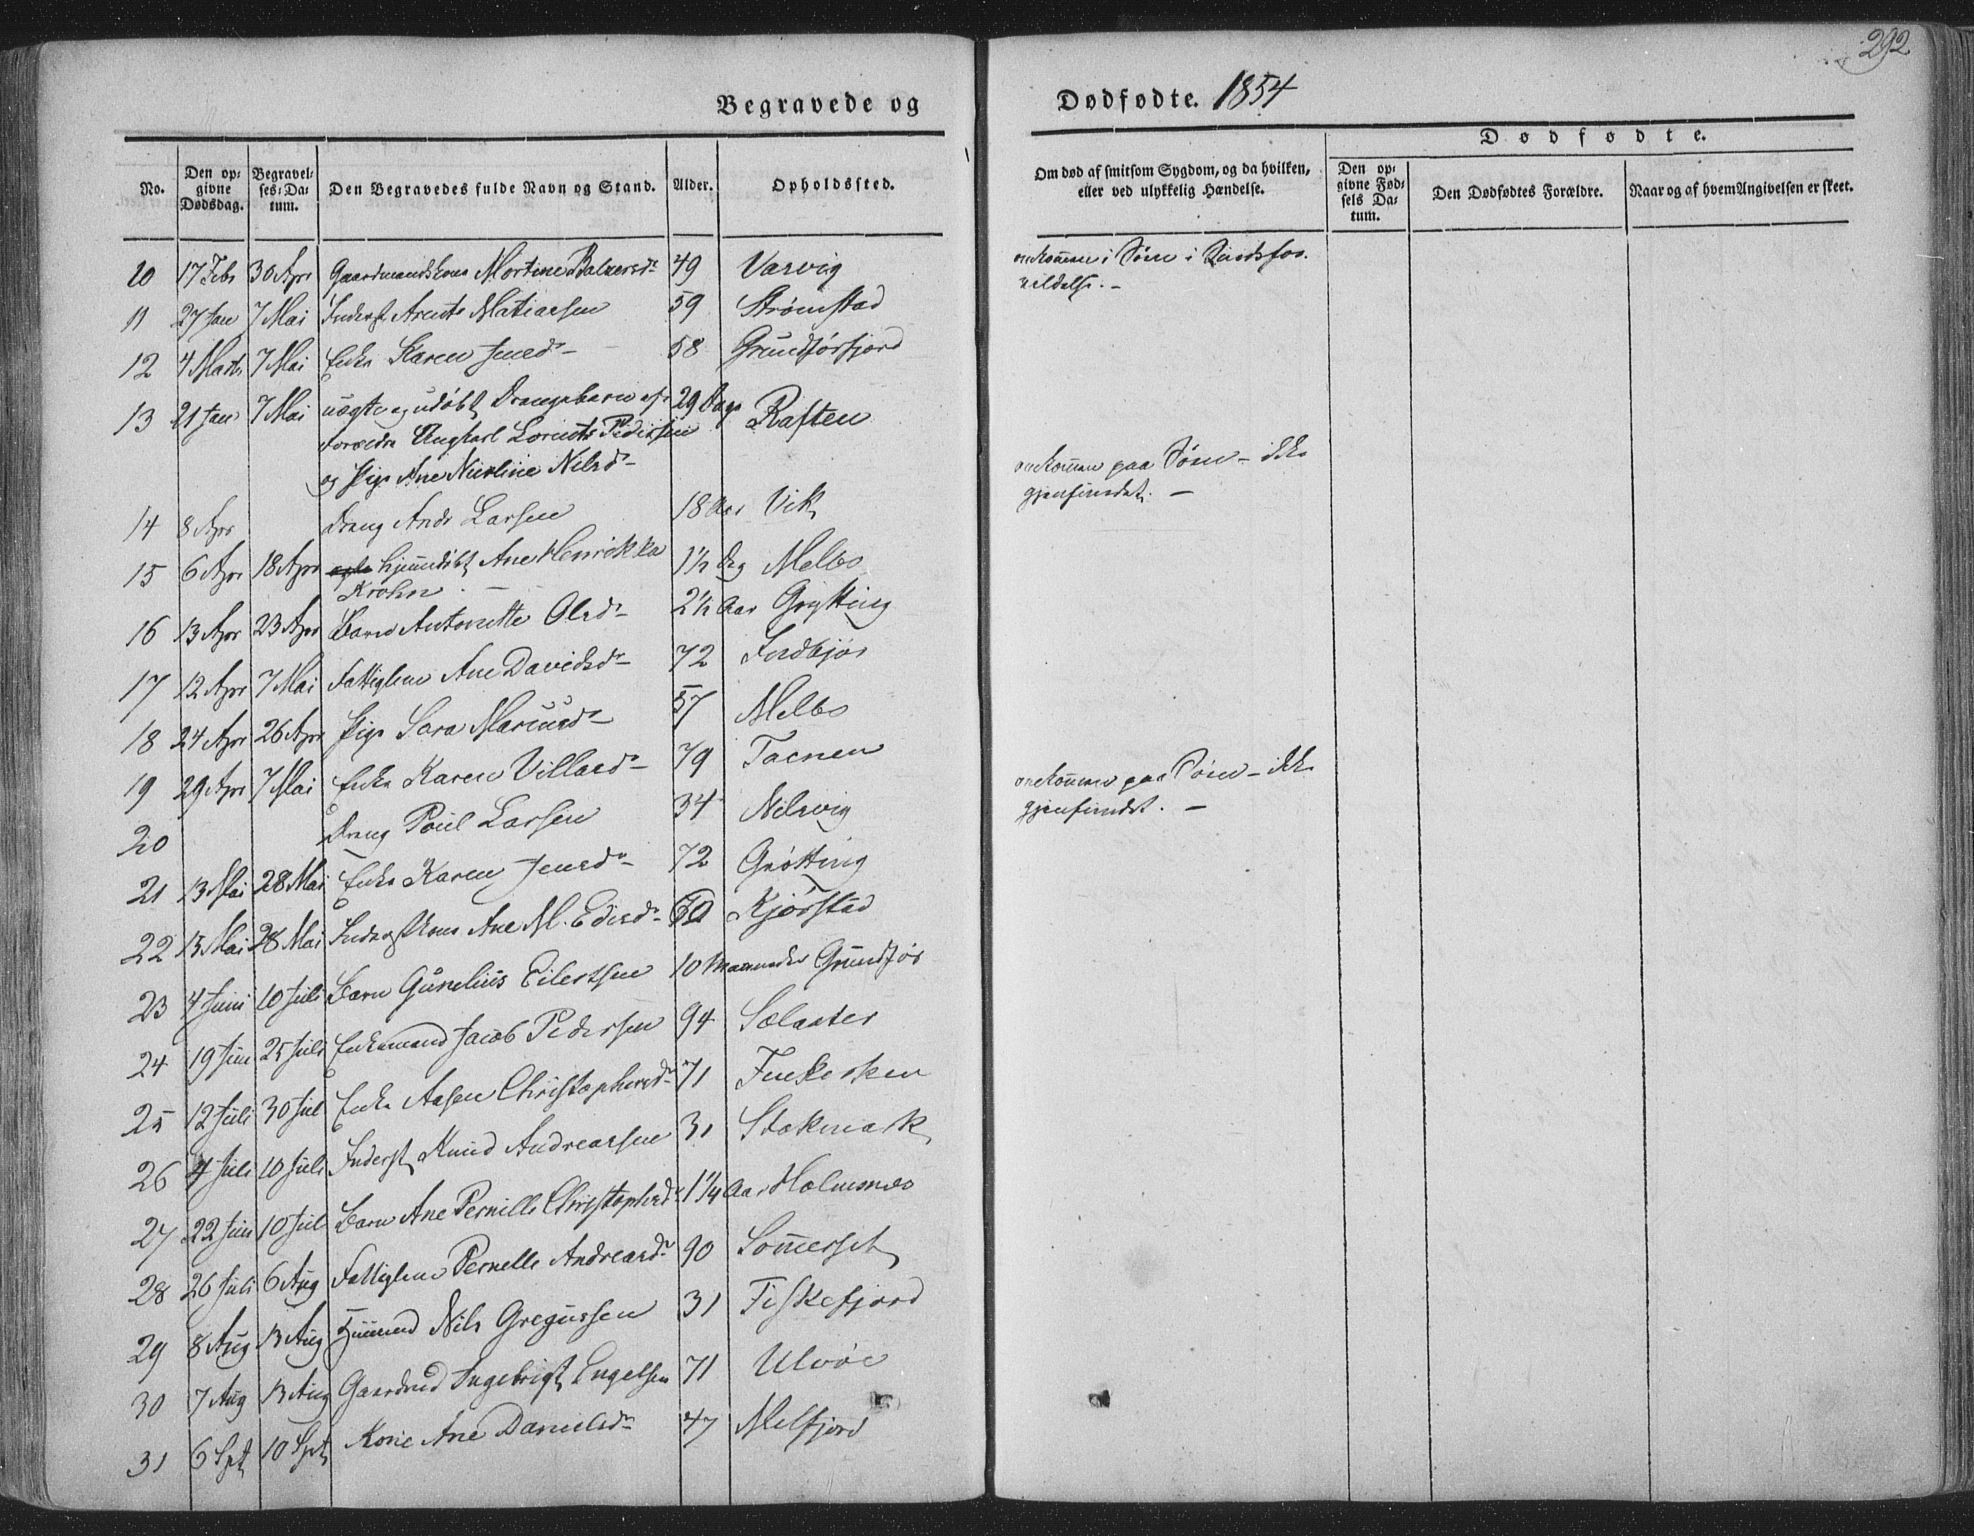 292
Begravede og Dødfødte. 1854
Dødfødte.
No.
Den opgivne Dødsdag.
Begravelses-Datum.
Den Begravedes fulde Navn og Stand.
Alder.
Opholdssted.
Om død af smitsom Sygdom, og da hvilken, eller ved ulykkelig Hændelse.
Den opgivne Fødsels Datum.
Den Dødfødtes Forældre.
Naar og af hvem Angivelsen er skeet.
10 17 Febr 30 Apr Gaardmandskone Martine 49 Varvig omkommen i Søen i Sindsforvildelse. -
11 27 Jan 7 Mai Inderst Arents Matiasen 59 Strømstad
12 4 Marts 7 Mai Enke Karen Jensdr 58 Grundførfjord
13 21 Jan 7 Mai uægte og udøbt Drengebarn af 29 Dage Raften
Forældre Ungkarl Lorents Pedersen
og Pige Ane Nicoline Nilsdr
14 8 Apr Dreng Andr Larsen 18 Aar Vik omkommen paa Søen - ikke gjenfundet. -
15 6 Apr 18 Apr hjemdøbt Ane Henrikka 1½ Dag Melbo
Krohn -
16 13 Apr 23 Apr Barn Antonette Olsdr 2½ Aar Grytting
17 12 Apr 7 Mai Fattiglem Ane Davidsdr 72
18 24 Apr 26 Apr Pige Sara 57 Melbo
19 29 Apr 7 Mai Enke Karen Villasdr 79 Taenen
20 Dreng Poul Larsen 34 Nilsvig omkommen paa Søen - ikke gjenfundet. -
21 13 Mai 28 Mai Enke Karen Jensdr 72 Grøtting
22 15 Mai 28 Mai Inderstkone Ane M. Edisdr 60 Kjørstad
23 4 Juni 10 Juli Barn Gunelius Eilertsen 10 Maaneder Grundfør
24 19 Juni 25 Juli Enkemand Jacob Pedersen 94 Sælaater
25 12 Juli 30 Jul Enke Aasen Christophersdr 71
26 4 Juli 10 Juli Inderst Knud Andreassen 31 Stokmark
27 22 Juni 10 Jul Barn Ane Pernille Christophersdr 1¼ Aar Holmsnes
28 26 Juli 6 Aug Fattiglem Pernelle Andreasdr 90 Sommerset
29 8 Aug 13 Aug Huusmd Nils Gregussen 31 Fiskefjord
30 7 Aug 13 Aug Gaardmd Ingebrigt Engelsen 71 Ulvøe
31 6 Spt 10 Spt Kone Ane Danielsdr 47 Melfjord